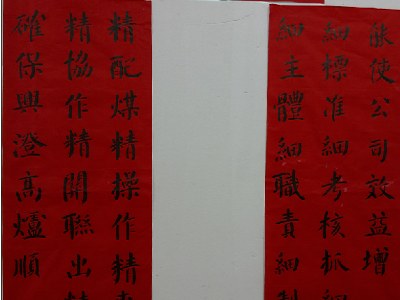 能使公司效益增
細標准細考核抓細
細主體細職責細制
精配煤精操作精
精協作精開聯出精
確保興澄高爐順